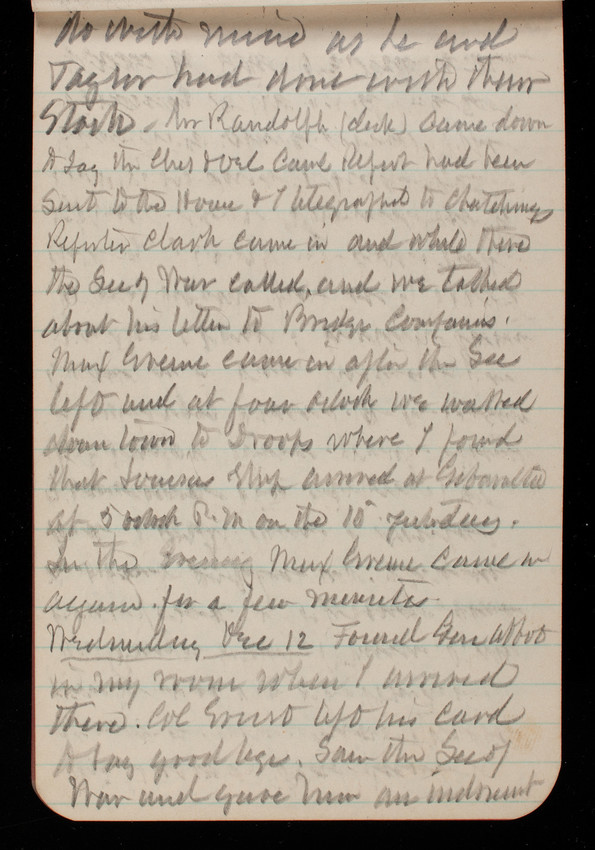 do with mine as he and
Taylor had done with their
Stock. Mr Randolph (clerk) came down
to say the Ches & Del Canl Report had been
sent to the House & I telegraphed to Chatchings
Reporter Clark came in and while there
the Sec of War called, and we talked
about his letter to Bridge Companies.
Max came in after the Sec
left and at four oclock we walked
down town to Droops where I found
that Louises Ship arrived at Gibralter
at 5 oclock P.M on the 10
In the evening Max came in
again. for a few minutes
Wednesday Dec 12 Found Gen Abbot
in my room when I arrived
there. Col left his card
to say good bye. Saw the Sec of
War and gave him an indorsmt